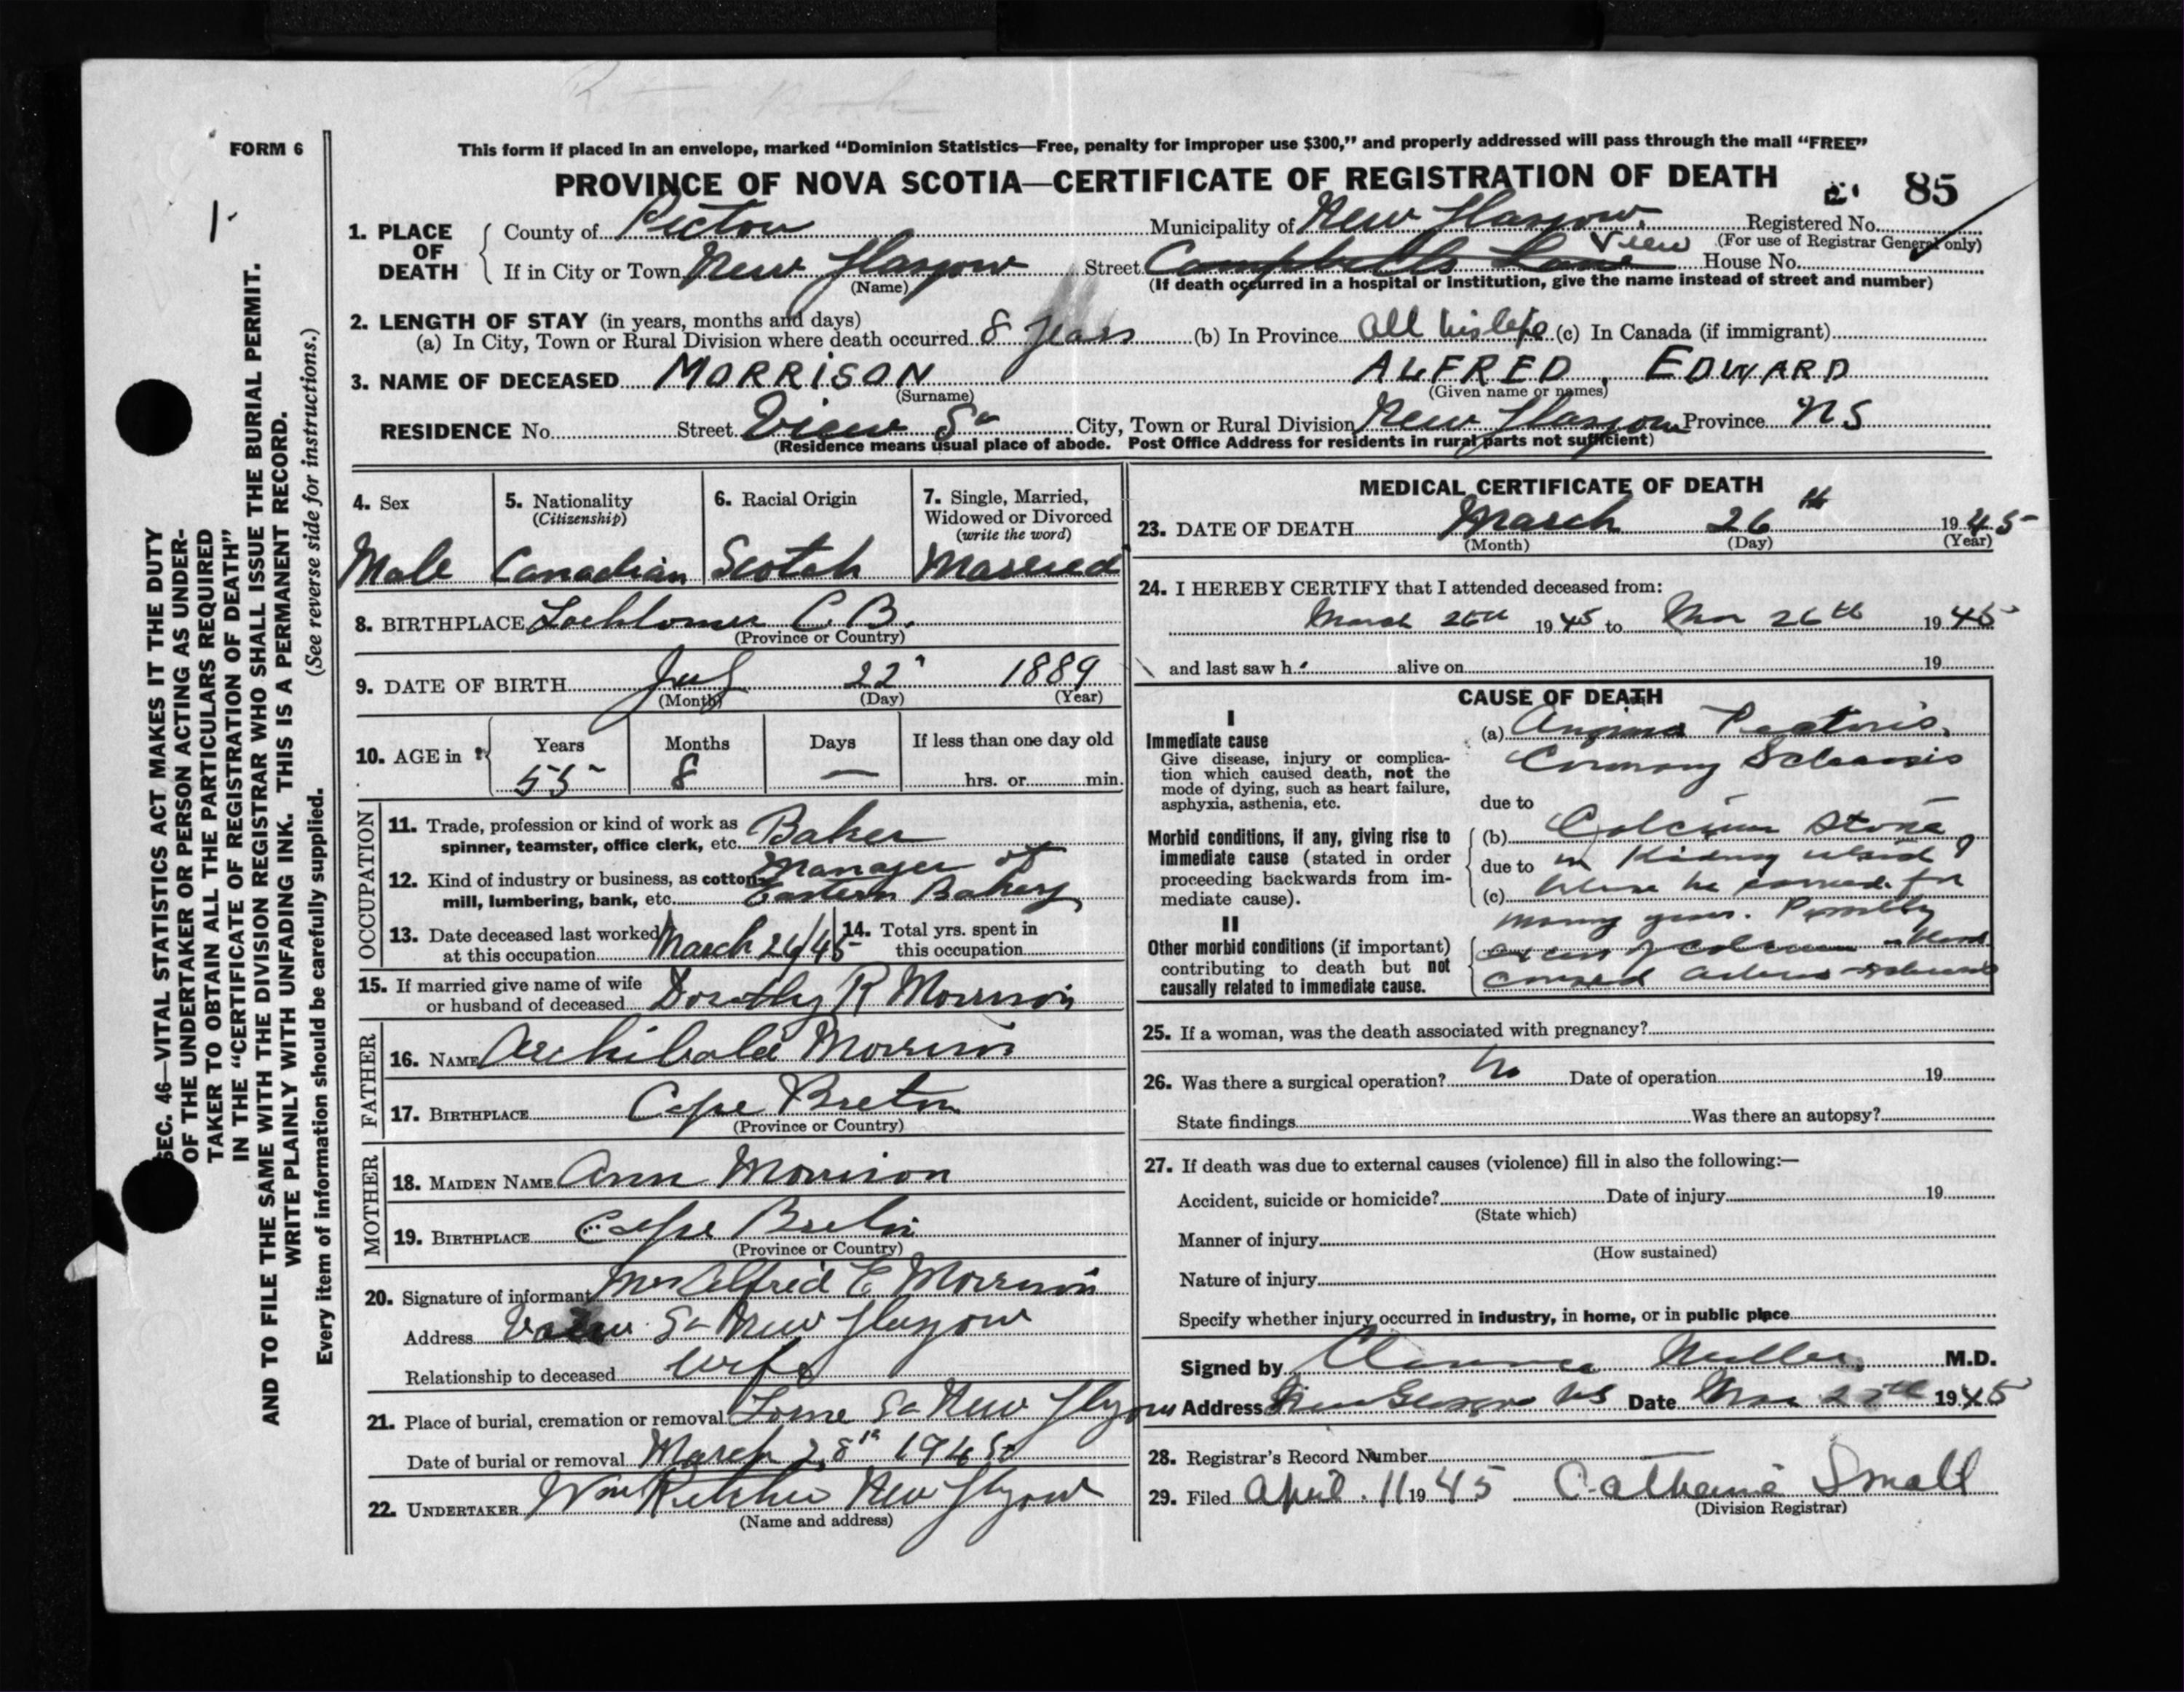 FORM 6
1.
This form if placed in an envelope, marked “Dominion Statistics—Free, penalty for improper use $300,” and properly addressed will pass through the mail “FREE”
PROVINCE OF NOVA SCOTIA—CERTIFICATE OF REGISTRATION OF DEATH
85
1. PLACE OF DEATH
County of Pictou Municipality of New Glasgow. Registered No.
(For use of Registrar General only)
If in City or Town New Glasgow Street Campbells Lane View House No.
(Name) (If death occurred in a hospital or institution, give the name instead of street and number)
2. LENGTH OF STAY (in years, months and days)
(a) In City, Town or Rural Division where death occurred 8 years (b) In Province all his life (c) In Canada (if immigrant)
3. NAME OF DECEASED MORRISON ALFRED, EDWARD
(Surname) (Given name or names)
RESIDENCE No. Street View St City, Town or Rural Division New Glasgow Province NS
(Residence means usual place of abode. Post Office Address for residents in rural parts not sufficient)
4. Sex
Male
5. Nationality
(Citizenship)
Canadian
6. Racial Origin
Scotch
7. Single, Married,
Widowed or Divorced
(write the word)
Married
8. BIRTHPLACE C. B.
(Province or Country)
9. DATE OF BIRTH July 22 1889
(Month) (Day) (Year)
10. AGE in
Years Months Days If less than one day old
55 8 — hrs. or min.
OCCUPATION
11. Trade, profession or kind of work as
spinner, teamster, office clerk, etc. Baker
12. Kind of industry or business, as cotton Manager of
mill, lumbering, bank, etc. Eastern Bakery
13. Date deceased last worked
at this occupation March 26/45
14. Total yrs. spent in
this occupation
15. If married give name of wife
or husband of deceased Dorothy R Morrison
FATHER
16. NAME Archibald Morrison
17. BIRTHPLACE Cape Breton
(Province or Country)
MOTHER
18. MAIDEN NAME Ann Morrison
19. BIRTHPLACE Cape Breton
(Province or Country)
20. Signature of informant Mrs Alfred E Morrison
Address View St New Glasgow
Relationship to deceased wife
21. Place of burial, cremation or removal Lorne St New Glasgow
Date of burial or removal March 28th 1945
22. UNDERTAKER Wm Ritchie New Glasgow
(Name and address)
MEDICAL CERTIFICATE OF DEATH
23. DATE OF DEATH March 26th 1945
(Month) (Day) (Year)
24. I HEREBY CERTIFY that I attended deceased from:
March 26th 1945 to Mar 26th 1945
and last saw h alive on 19
CAUSE OF DEATH
I
Immediate cause
Give disease, injury or complica-
tion which caused death, not the
mode of dying, such as heart failure,
asphyxia, asthenia, etc.
(a) Angina Pectoris,
Coronary Sclerosis
due to
Morbid conditions, if any, giving rise to
immediate cause (stated in order
proceeding backwards from im-
mediate cause).
(b) Calcium Stone
due to in Kidney which
(c) he carried for
many years. Possibly
II
Other morbid conditions (if important)
contributing to death but not
causally related to immediate cause.
excess of calcium in blood
caused
25. If a woman, was the death associated with pregnancy?
26. Was there a surgical operation? No Date of operation 19
State findings Was there an autopsy?
27. If death was due to external causes (violence) fill in also the following:—
Accident, suicide or homicide? Date of injury 19
(State which)
Manner of injury
(How sustained)
Nature of injury
Specify whether injury occurred in industry, in home, or in public place
Signed by Clarence Miller M.D.
Address New Glasgow NS Date Mar 27th 1945
28. Registrar’s Record Number
29. Filed April 11 1945 Catherine Small
(Division Registrar)
SEC. 46—VITAL STATISTICS ACT MAKES IT THE DUTY
OF THE UNDERTAKER OR PERSON ACTING AS UNDER-
TAKER TO OBTAIN ALL THE PARTICULARS REQUIRED
IN THE “CERTIFICATE OF REGISTRATION OF DEATH”
AND TO FILE THE SAME WITH THE DIVISION REGISTRAR WHO SHALL ISSUE THE BURIAL PERMIT.
WRITE PLAINLY WITH UNFADING INK. THIS IS A PERMANENT RECORD.
Every item of information should be carefully supplied. (See reverse side for instructions.)